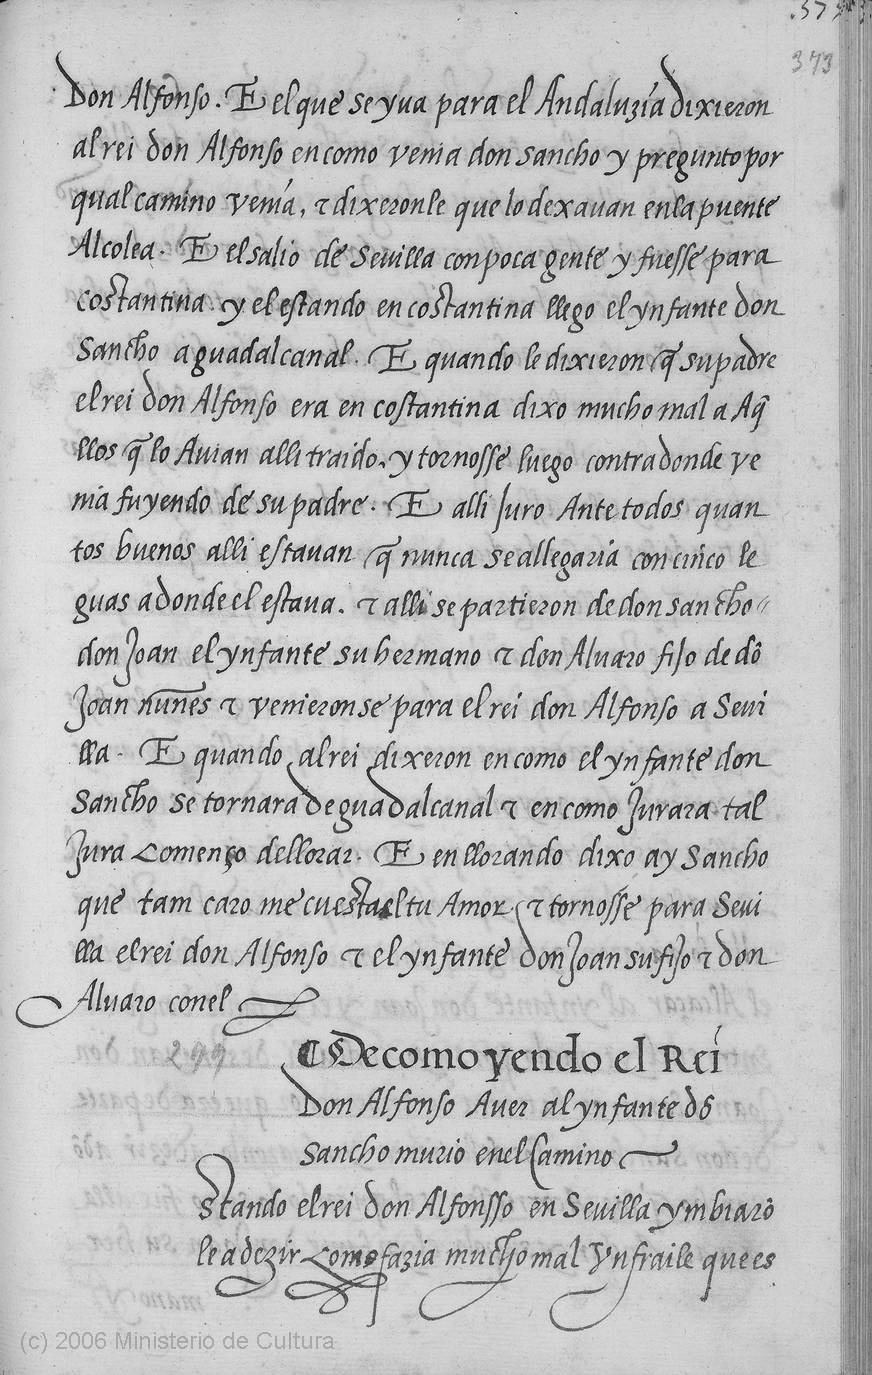 373
Don Alfonso. E el que se yua para el Andaluzía dixieron
al rei don Alfonso en como venia don sancho y pregunto por
qual camino venía, τ dixeronle que lo dexauan en la puente
Alcolea. E el salio de Seuilla con poca gente y fuesse para
costantina. y el estando en costantina llego el ynfante don
Sancho a guadalcanal. E quando le dixieron q̃ su padre
el rei don Alfonso era en costantina dixo mucho mal a Aq̃
llos q̃ lo Auian alli traido, y tornosse luego contra donde ve
nia fuyendo de su padre. E alli Juro Ante todos quan
tos buenos alli estauan q̃ nunca se allegaría con cinco le
guas a donde el estaua. τ alli se partieron de don sancho //
don Joan el ynfante su hermano τ don Aluaro fijo de dõ
Joan nuñes τ venieronse para el rei don Alfonso a Seui
lla. E quando al rei dixeron en como el ynfante don
Sancho se tornara de guadalcanal τ en como Jurara tal
Jura començo dellorar. E en llorando dixo ay Sancho
que tam caro me cuesta el tu Amor, τ tornosse para Seui
lla el rei don Alfonso τ el ynfante don Joan su fijo τ don
Aluaro con el
299
¶ De como yendo el Reí
Don Alfonso Auer al ynfante dõ
Sancho murio enel Camino
Stando el rei don Alfonsso en Seuilla ymbiarõ
le a dezir Como fazia mucho mal Yn fraile que es
(c) 2006 Ministerio de Cultura